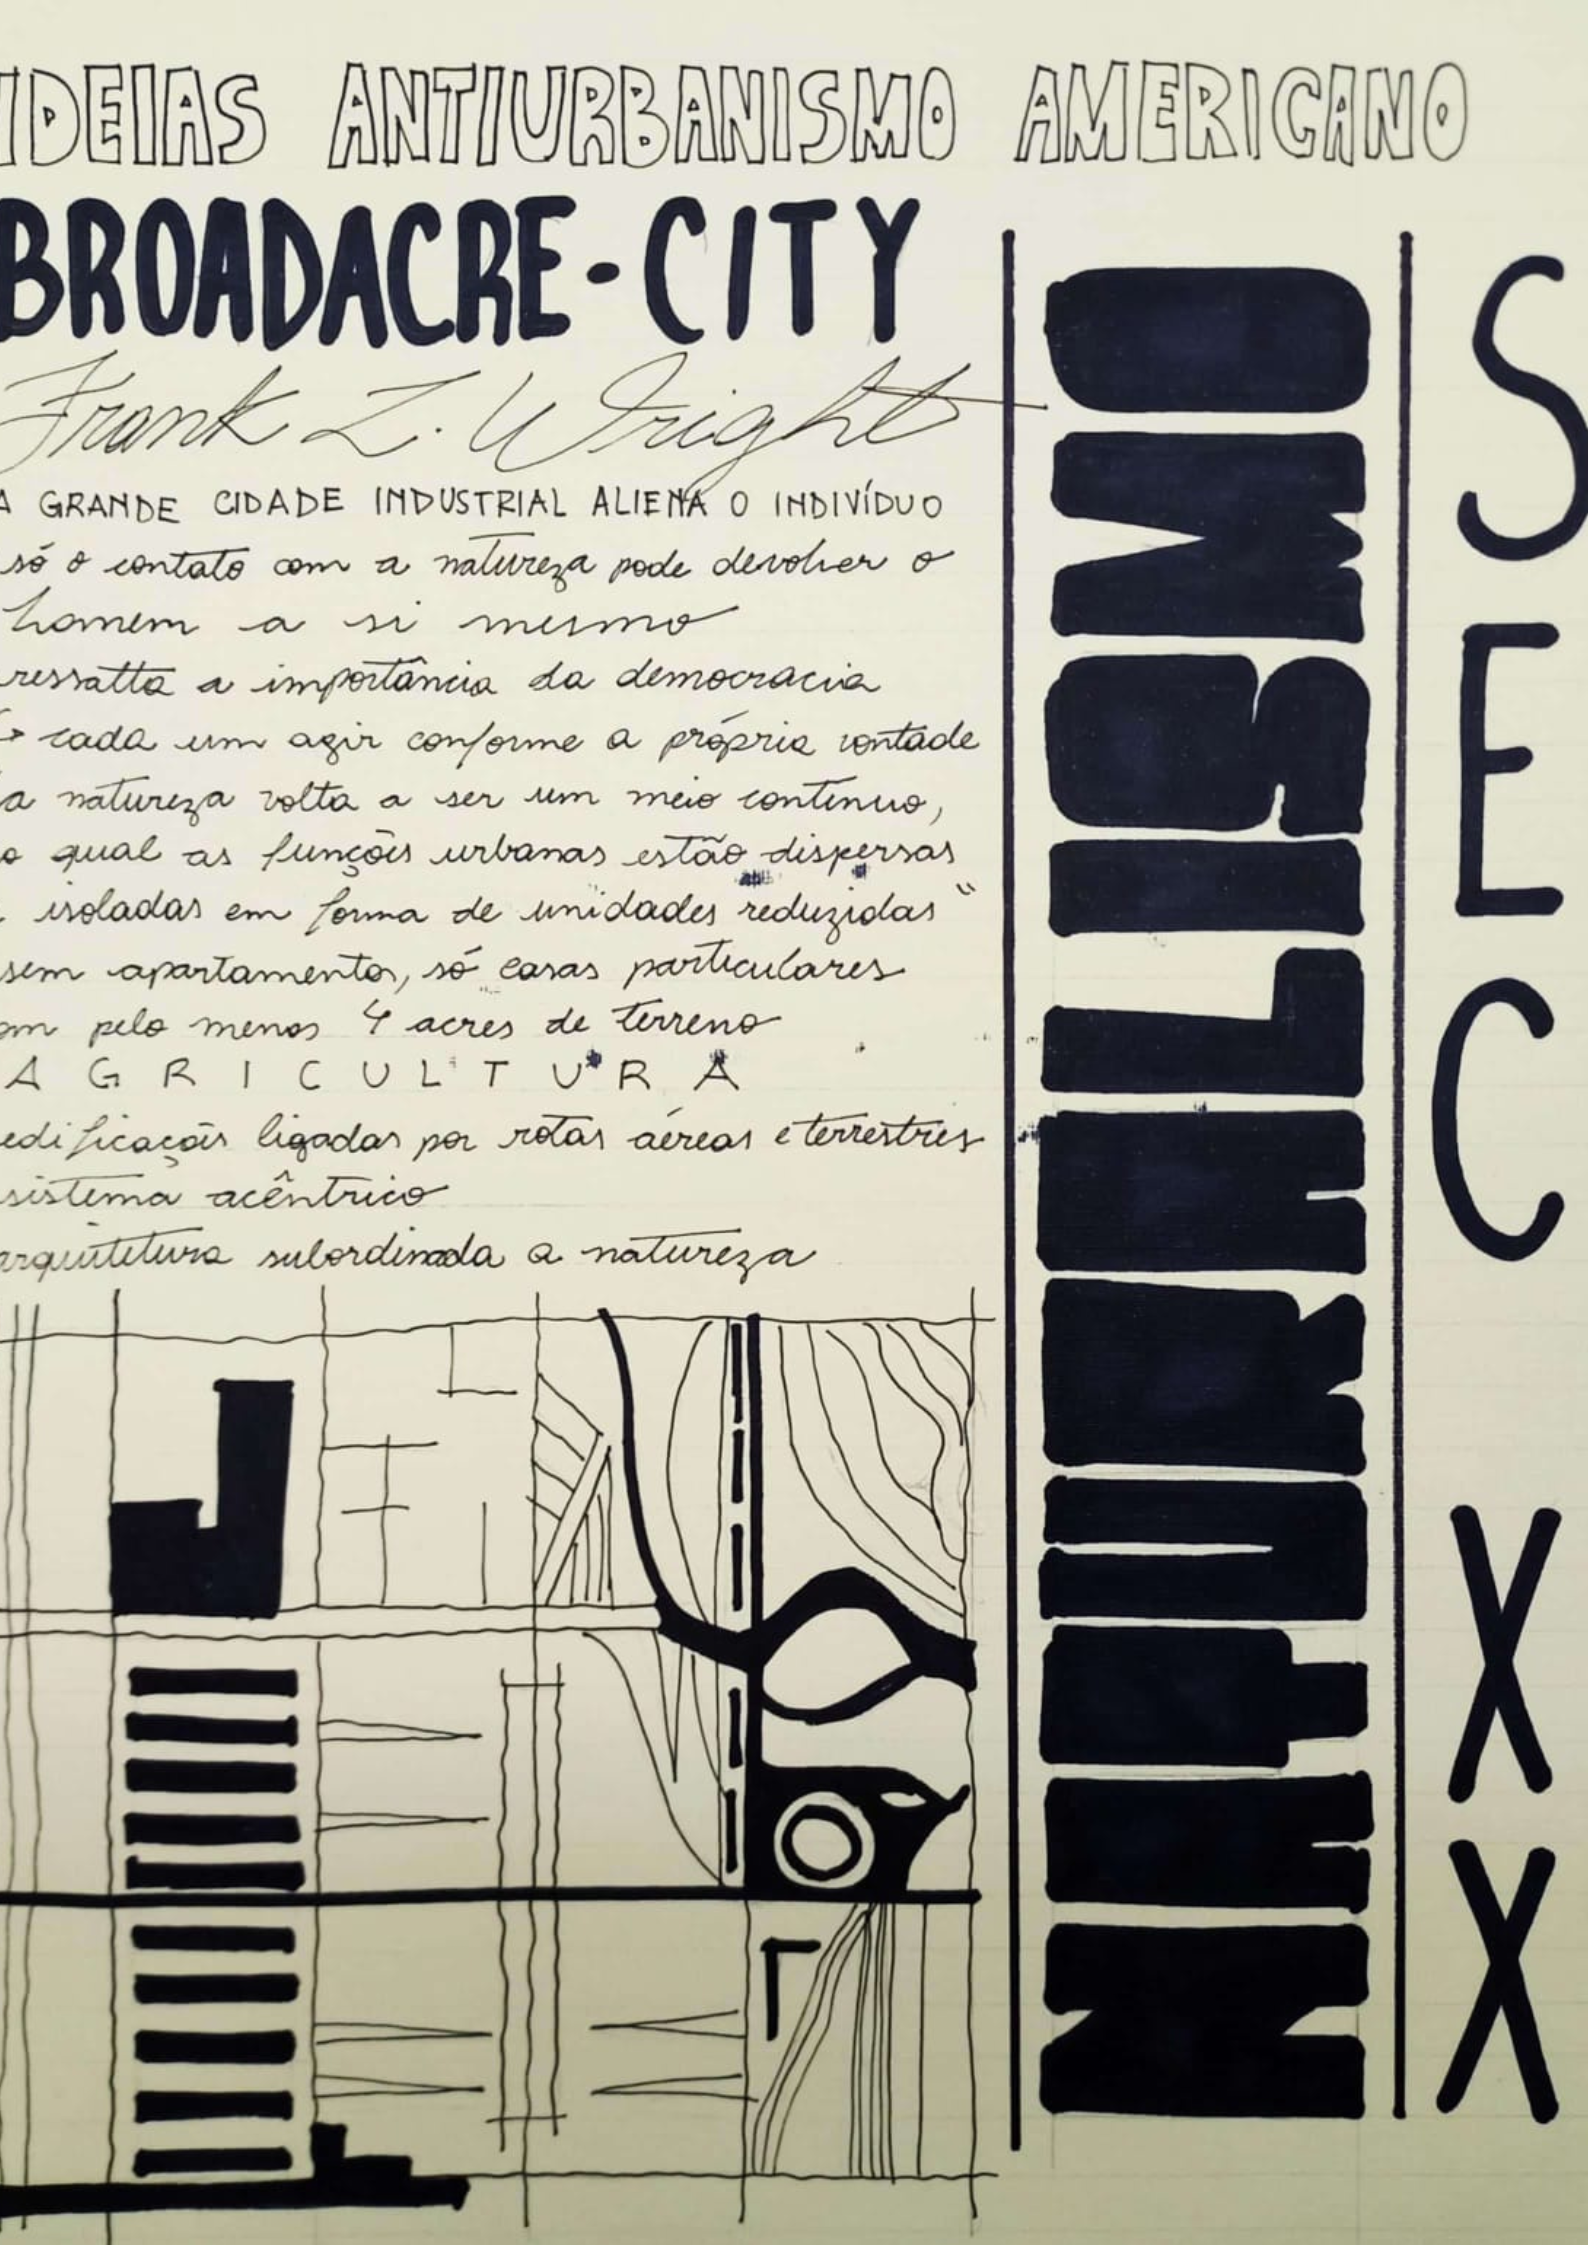 IDEIAS ANTIURBANISMO AMERICANO
BROADACRE-CITY
Frank L. Wright
A GRANDE CIDADE INDUSTRIAL ALIENA O INDIVÍDUO
só o contato com a natureza pode devolver o
homem a si mesmo
ressalta a importância da democracia
↳ cada um agir conforme a própria vontade
a natureza volta a ser um meio contínuo,
o qual as funções urbanas estão dispersas
isoladas em forma de unidades reduzidas"
sem apartamentos, só casas particulares
om pelo menos 4 acres de terreno
AGRICULTURA
edificações ligadas por rotas aéreas e terrestres
sistema acêntrico
arquitetura subordinada a natureza
NATURALISMO
SEC XX